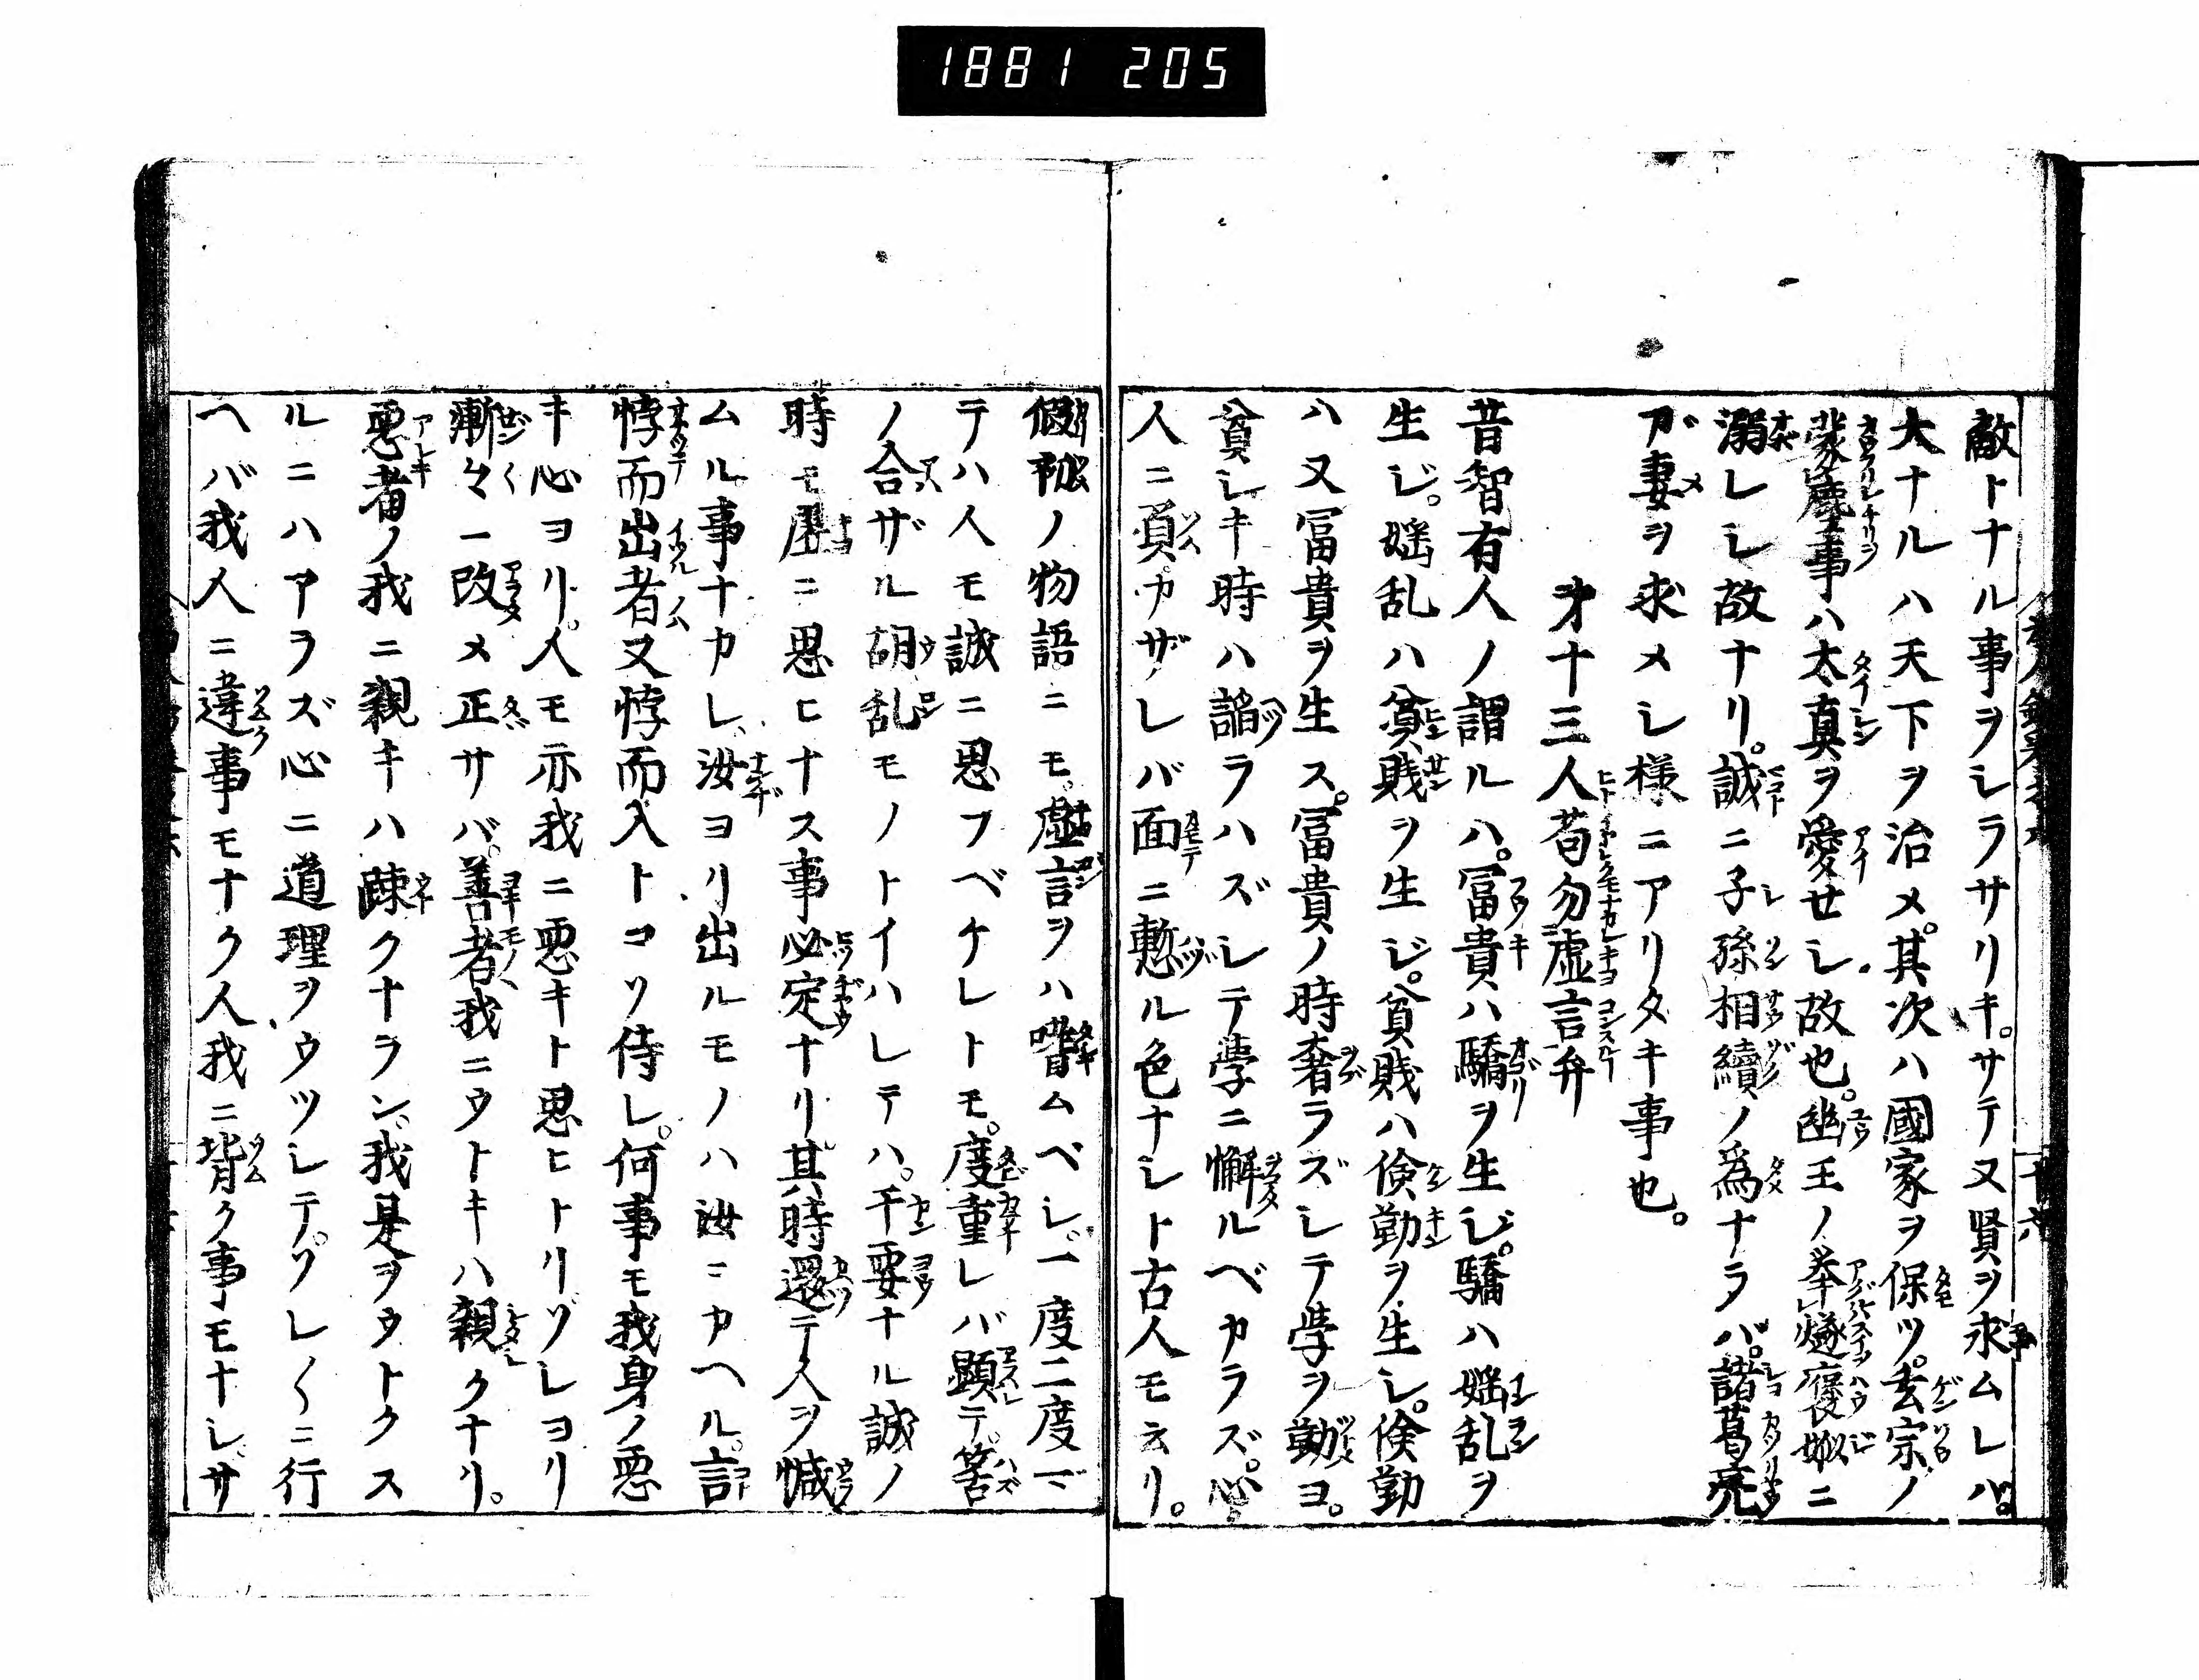 1881 205
敵トナル事ヲシラサリキ。サテ又賢ヲ求ムレバ。
大ナルハ天下ヲ治メ。其次ハ國家ヲ保ツ。玄宗ノ
蒙塵事ハ太真ヲ愛せシ故也。幽王ノ挙燧褒姒ニ
溺レシ故ナリ。誠ニ子孫相續ノ為ナラバ。諸葛亮
ガ妻ヲ求メシ様ニアリタキ事也。
才十三人苟勿虚言弁
昔智有人ノ謂ルハ。冨貴ハ驕ヲ生ジ。驕ハ婬乱ヲ
生ジ。婬乱ハ貧賎ヲ生ジ。貧賎ハ倹勤ヲ生シ。倹勤
ハ又冨貴ヲ生ス。冨貴ノ時奢ラズシテ学ヲ勤ヨ。
貧シキ時ハ謟ラハズシテ学ニ懈ルベカラズ。心
人ニ負カザレバ面ニ慙ル色ナシト古人モ云リ。
假初ノ物語ニモ。虚言ヲハ嗜ムベシ。一度二度マ
テハ人モ誠ニ思フベケレトモ。度重レバ顕テ。筈
ノ合ザル胡乱モノトイハレテハ。干要ナル誠ノ
時モ虚ニ思ヒナス事必定ナリ。其時還テ人ヲ憾
ムル事ナカレ、汝ヨリ出ルモノハ汝ニカヘル。言
悖而出者又悖而入トコソ侍レ。何事モ我身ノ悪
キ心ヨリ。人モ亦我ニ悪キト思ヒトリゾレヨリ
漸々ニ改メ正サバ。善者我ニウトキハ親クナリ。
悪者ノ我ニ親キハ疎クナラン。我是ヲウトクス
ルニハアラズ心ニ道理ヲウツシテ。ソレ〱ニ行
ヘバ我人ニ違事モナク人我ニ背ク事モナシ。サ